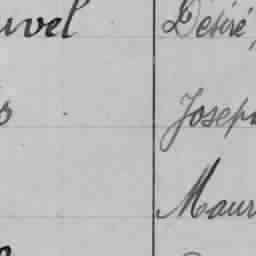 uvel Désiré,
s Joseph
Maur